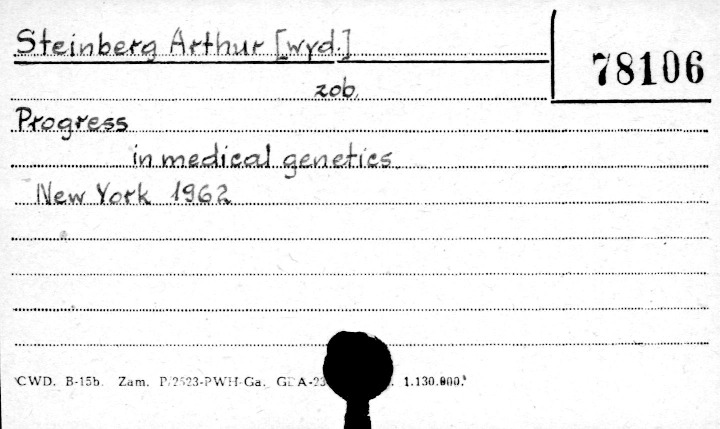 Steinberg Arthur [wyd.]
78106
zob.
Progress
in medical genetics.
New York 1962
CWD. B-15b. Zam. P/2523-PWH-Ga. GDA-23 1.130.000.